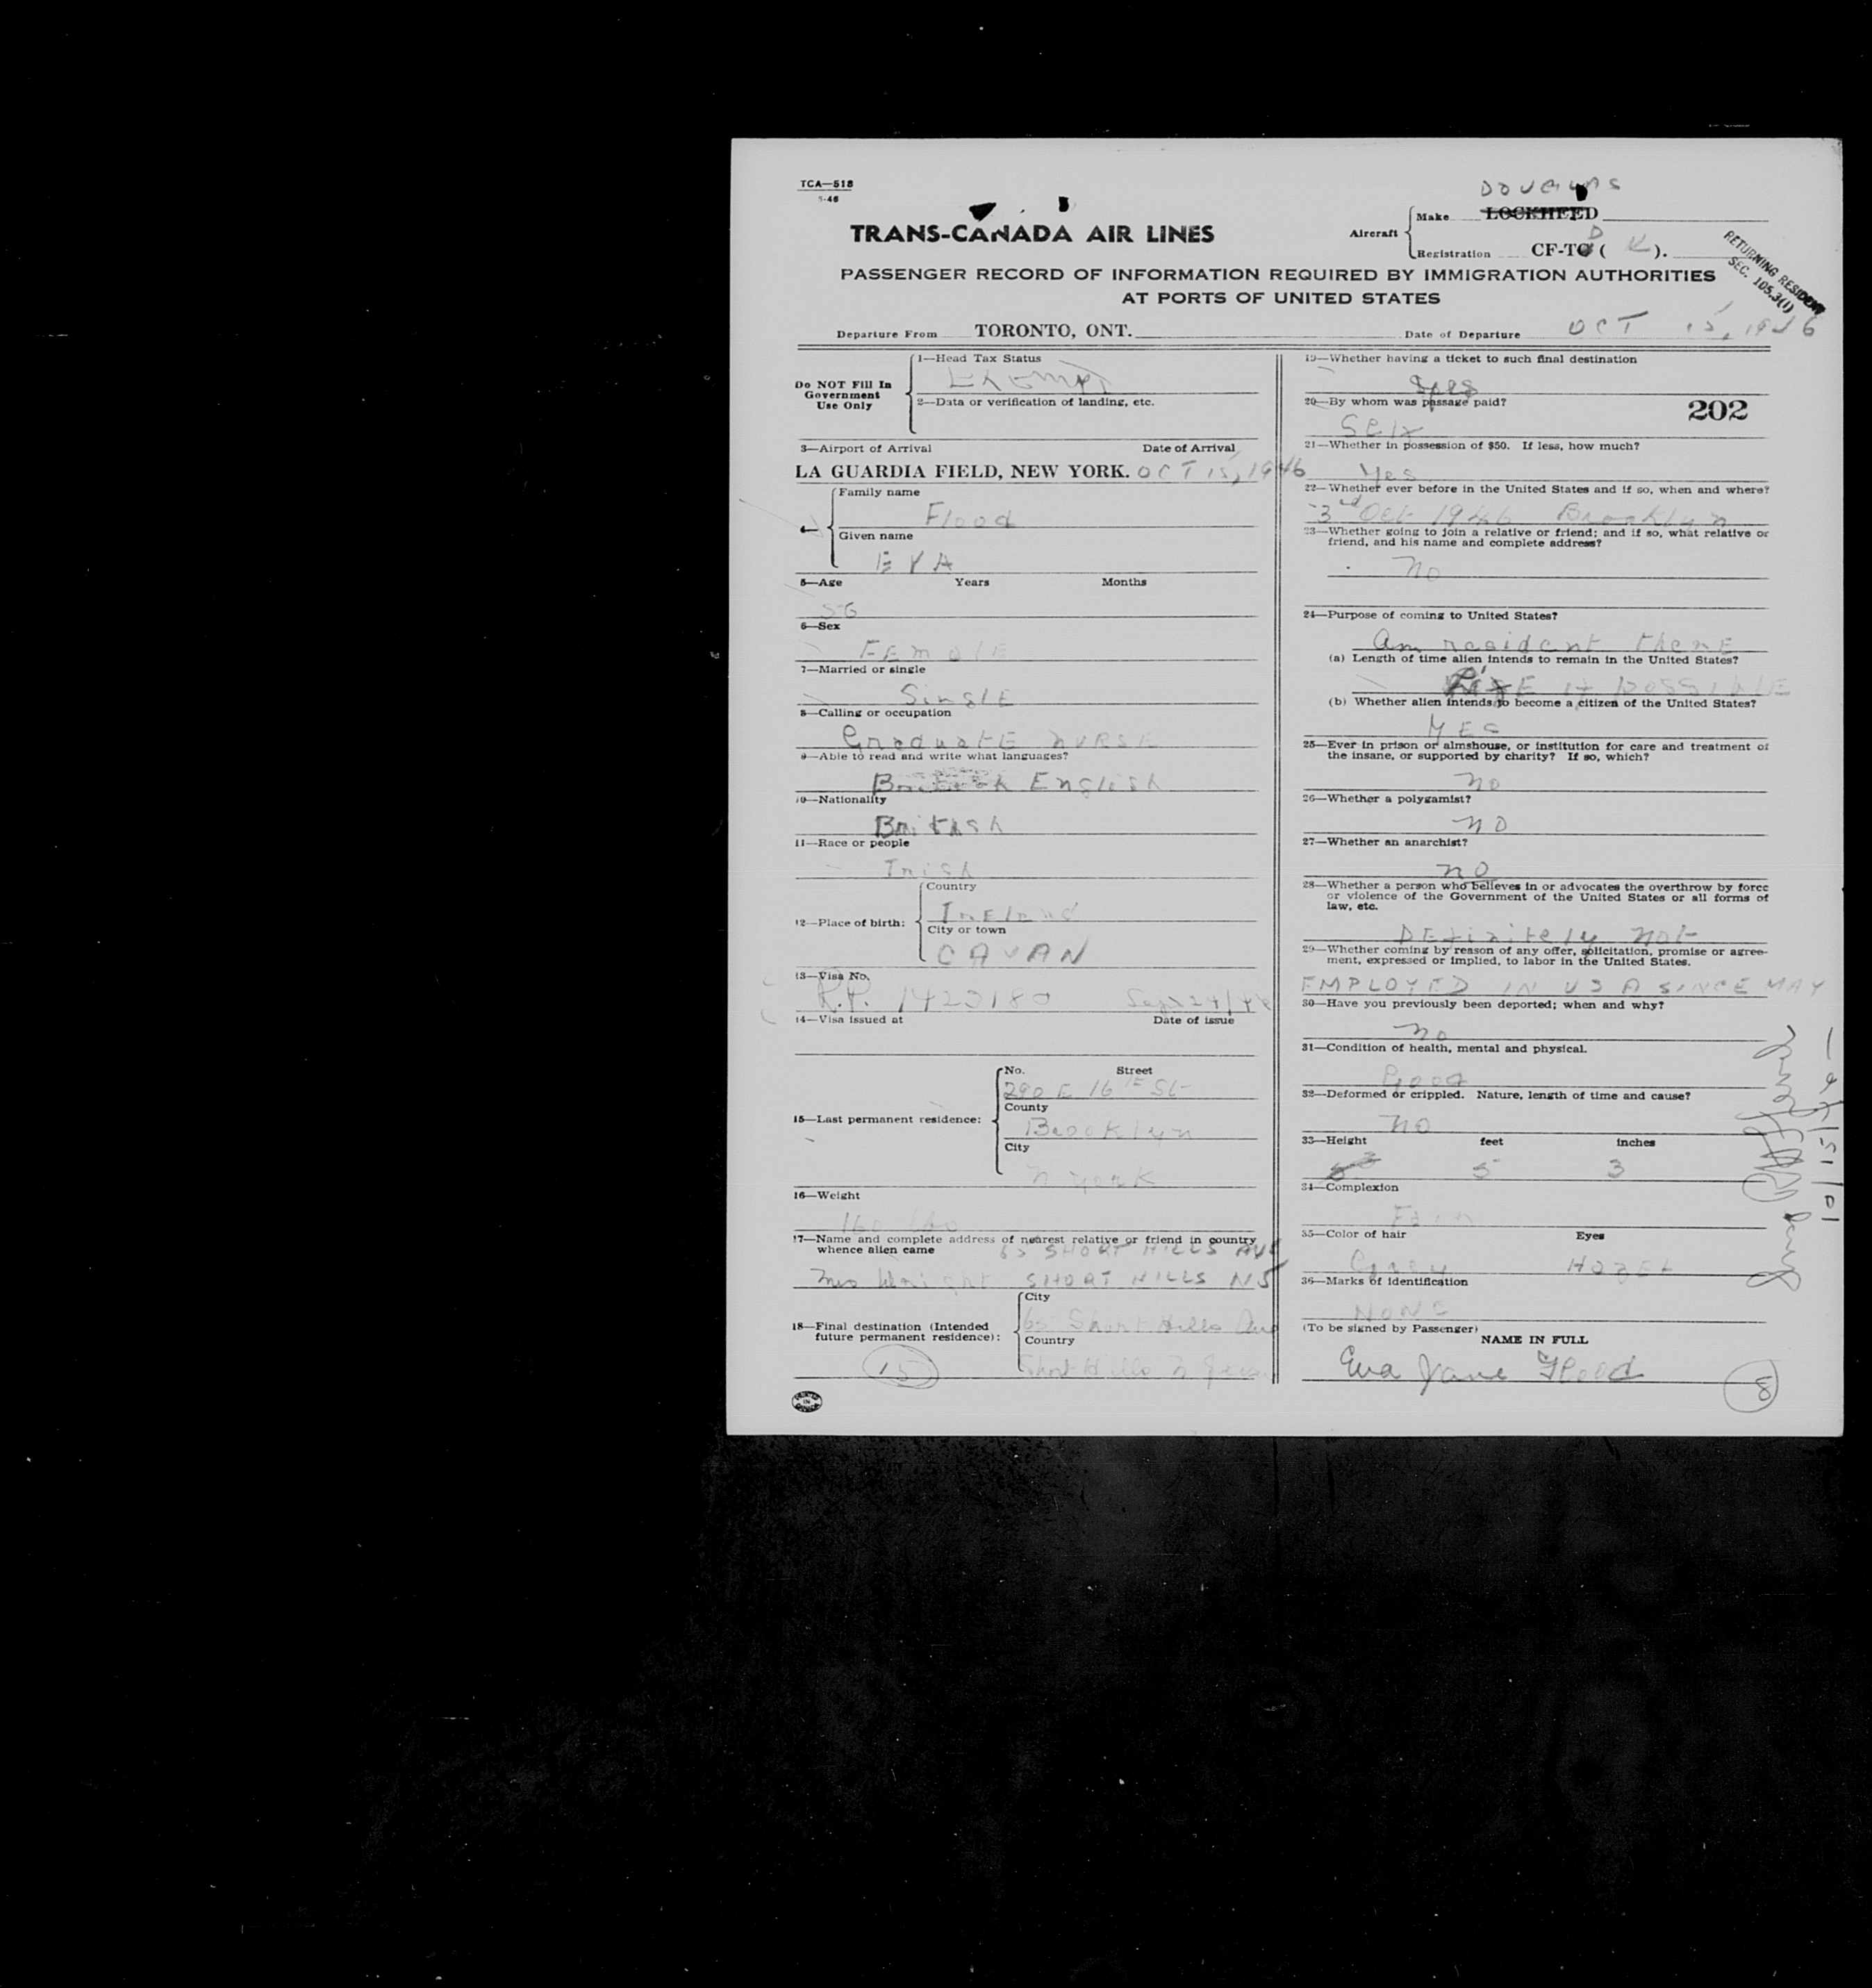 TCA—518
TRANS-CANADA AIR LINES
Aircraft
Make DOUGLAS LOCKHEED
Registration CF-TO D ( K ).
RETURNING RESIDENT
SEC. 105.3(1)
PASSENGER RECORD OF INFORMATION REQUIRED BY IMMIGRATION AUTHORITIES
AT PORTS OF UNITED STATES
Departure From TORONTO, ONT. Date of Departure OCT 15, 1946
Do NOT Fill In
Government
Use Only
1—Head Tax Status
Exempt
2—Data or verification of landing, etc.
3—Airport of Arrival Date of Arrival
LA GUARDIA FIELD, NEW YORK. OCT 15, 1946
4—
Family name
Flood
Given name
EVA
5—Age Years Months
56
6—Sex
FEmalE
7—Married or single
SinglE
8—Calling or occupation
GraduatE NURSE
9—Able to read and write what languages?
English
10—Nationality
British
11—Race or people
Irish
12—Place of birth:
Country
IrEland
City or town
CAVAN
13—Visa No.
R.P. 1423180 Sep 24/46
14—Visa issued at Date of issue
15—Last permanent residence:
No. Street
290 E 16 St
County
Brooklyn
City
N York
16—Weight
160
17—Name and complete address of nearest relative or friend in country
whence alien came
65 SHORT HILLS AVE
Mrs Wright SHORT HILLS NJ
18—Final destination (Intended
future permanent residence):
City
65 Short Hills Ave
Country
Short Hills N Jersey
15
19—Whether having a ticket to such final destination
yes
20—By whom was passage paid?
202
Self
21—Whether in possession of $50. If less, how much?
Yes
22—Whether ever before in the United States and if so, when and where?
3rd Oct 1946 Brooklyn
23—Whether going to join a relative or friend; and if so, what relative or
friend, and his name and complete address?
no
24—Purpose of coming to United States?
Am resident therE
(a) Length of time alien intends to remain in the United States?
LifE if possiblE
(b) Whether alien intends to become a citizen of the United States?
YES
25—Ever in prison or almshouse, or institution for care and treatment of
the insane, or supported by charity? If so, which?
no
26—Whether a polygamist?
no
27—Whether an anarchist?
no
28—Whether a person who believes in or advocates the overthrow by force
or violence of the Government of the United States or all forms of
law, etc.
DEfinitely not
29—Whether coming by reason of any offer, solicitation, promise or agree-
ment, expressed or implied, to labor in the United States.
EMPLOYED IN USA SINCE MAY
30—Have you previously been deported; when and why?
no
31—Condition of health, mental and physical.
Good
32—Deformed or crippled. Nature, length of time and cause?
no
33—Height feet inches
5 3
34—Complexion
Fair
35—Color of hair Eyes
Grey HazEl
36—Marks of identification
NONE
(To be signed by Passenger)
NAME IN FULL
Eva Jane Flood
8
10/15/46